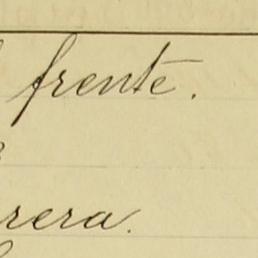 frente.
rera.